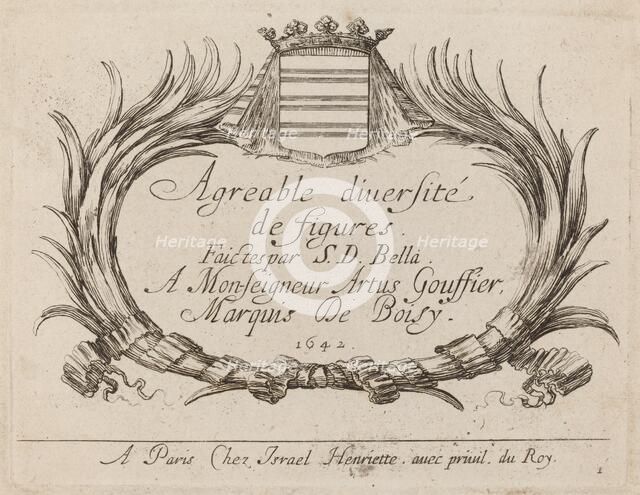 Agreable diuersité
de figures.
Faictes par S. D. Bella.
A Monseigneur Artus Gouffier,
Marquis De Boisy.
1642.
A Paris Chez Israel Henriette. auec priuil. du Roy.
1
Heritage
Heritage
Heritage
Heritage
Heritage
Heritage
Heritage
Heritage